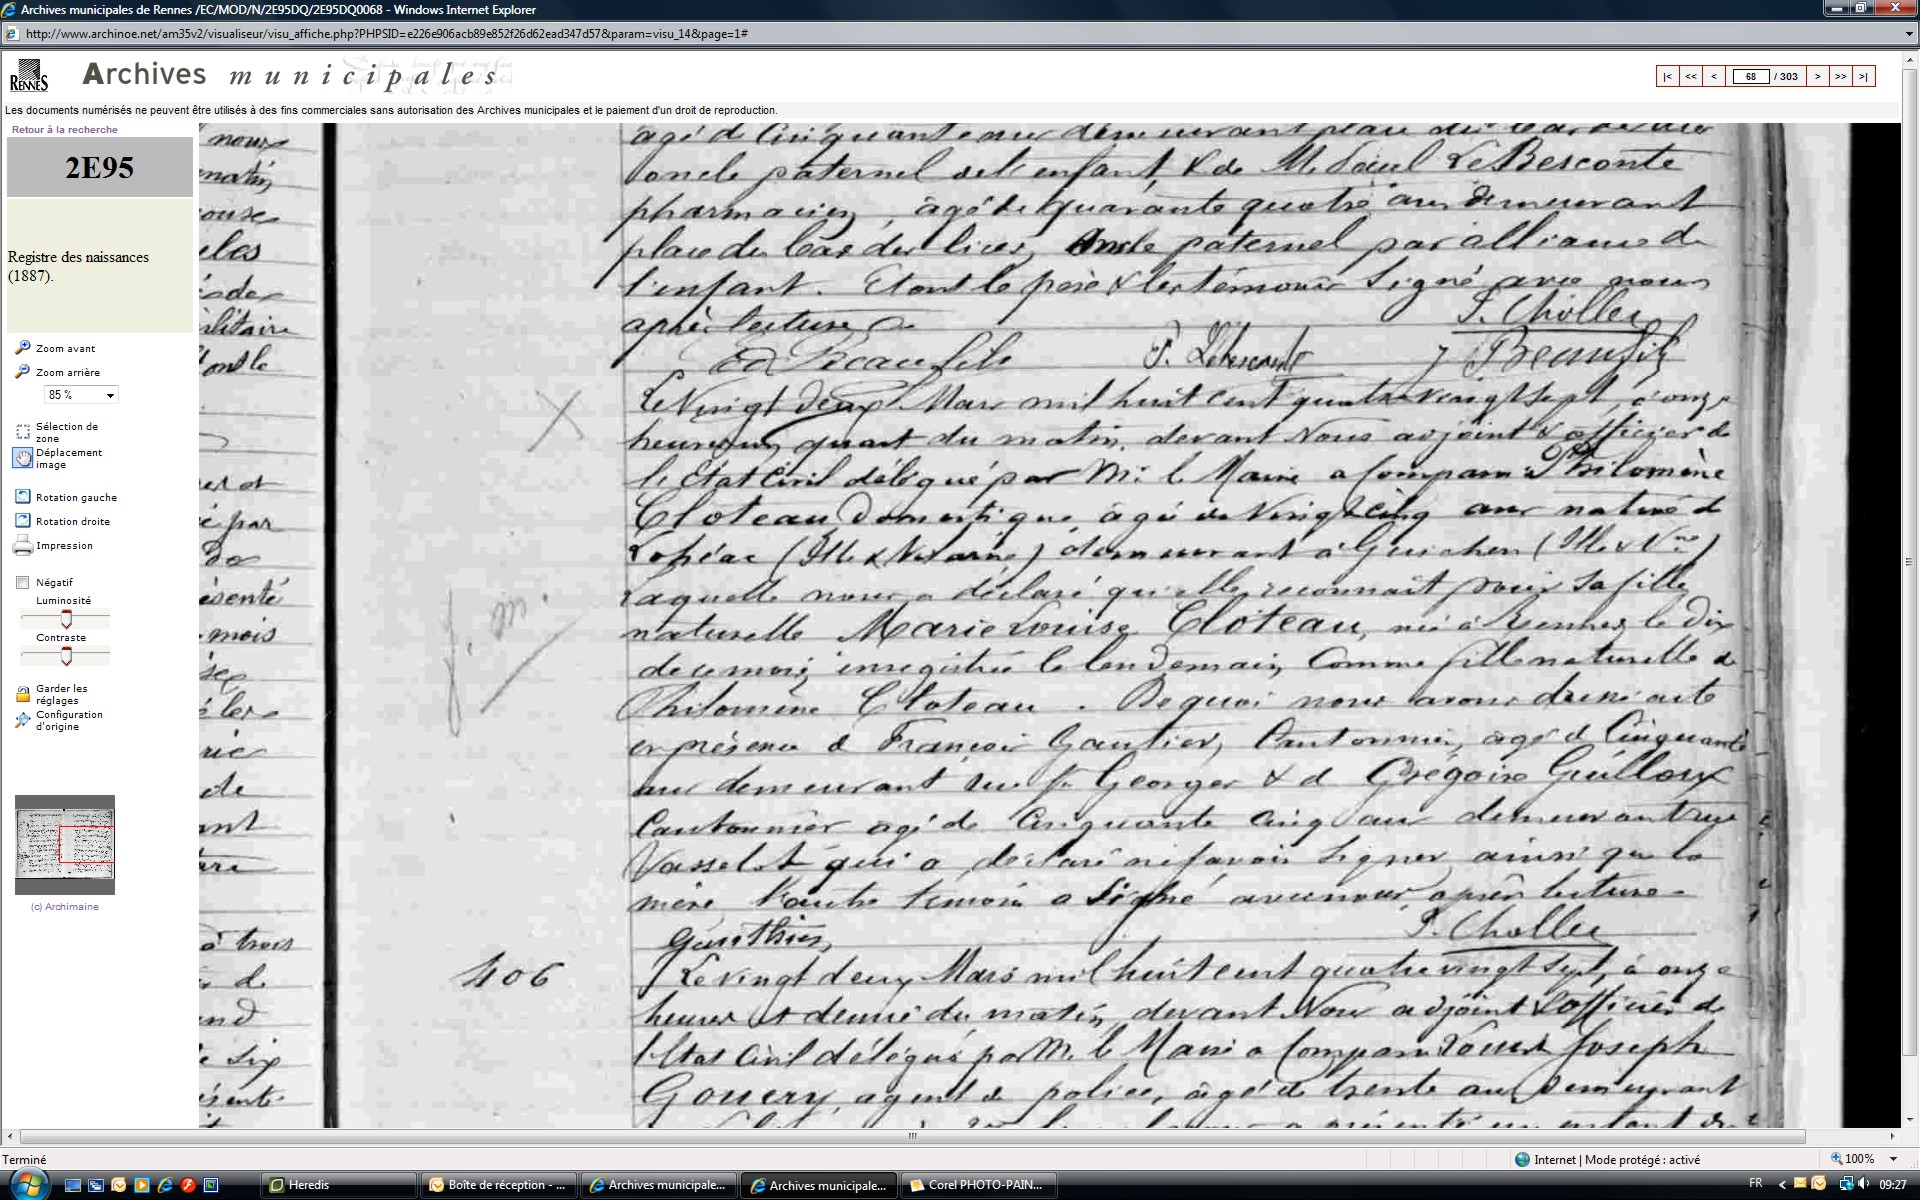 Archives municipales de Rennes /EC/MOD/N/2E95DQ/2E95DQ0068 - Windows Internet Explorer
http://www.archinoe.net/am35v2/visualiseur/visu_affiche.php?PHPSID=e226e906acb89e852f26d62ead347d57&param=visu_14&page=1#
RENNES Archives municipales
|< << < 68 / 303 > >> >|
Les documents numérisés ne peuvent être utilisés à des fins commerciales sans autorisation des Archives municipales et le paiement d'un droit de reproduction.
Retour à la recherche
2E95
Registre des naissances
(1887).
Zoom avant
Zoom arrière
85 %
Sélection de
zone
Déplacement
image
Rotation gauche
Rotation droite
Impression
Négatif
Luminosité
Contraste
Garder les
réglages
Configuration
d'origine
(c) Archimaine
agé de Cinquante ans demeurant place du
oncle paternel de l'enfant, & de M. Paul Le Besconte
pharmacien, âgé de quarante quatre ans demeurant
place du bas des lices, Oncle paternel par alliance de
l'enfant. Etant le père & les témoins Signé avec nous
après lecture
P. Lebesconte
Le Vingt deux Mars mil huit cent quatre vingt sept, à onze
heures un quart du matin, devant Nous adjoint & officier de
l'Etat Civil délégué par M. le Maire a Comparu Philomène
Cloteau, Domestique, âgée de Vingt cinq ans native de
Lohéac (Ille & Vilaine) demeurant à Guichen (Ille & Vne)
Laquelle nous a déclaré qu'elle reconnait pour sa fille
naturelle Marie Louise Cloteau, née à Rennes le Dix
de ce mois, inregistrée le lendemain, Comme fille naturelle de
Philomène Cloteau. De quoi nous avons donné acte
en présence de François Gautier, Cantonnier, âgé de Cinquante
ans demeurant rue St Georges & de Grégoire Guilloux
Cantonnier agé de Cinquante Cinq ans demeurant rue
Vasselot qui a déclaré ne savoir Signer ainsi que la
mère, l'autre témoin a Signé avec nous après lecture
Gauthier
406
Le vingt deux Mars mil huit cent quatre vingt sept, à onze
heures et demie du matin, devant Nous adjoint & officier de
l'Etat Civil délégué par M. le Maire a Comparu Louis Joseph
Gouery, agent de police, âgé de trente ans demeurant
Terminé
Internet | Mode protégé : activé
100%
Heredis
Boîte de réception - ...
Archives municipale...
Archives municipale...
Corel PHOTO-PAIN...
FR
09:27